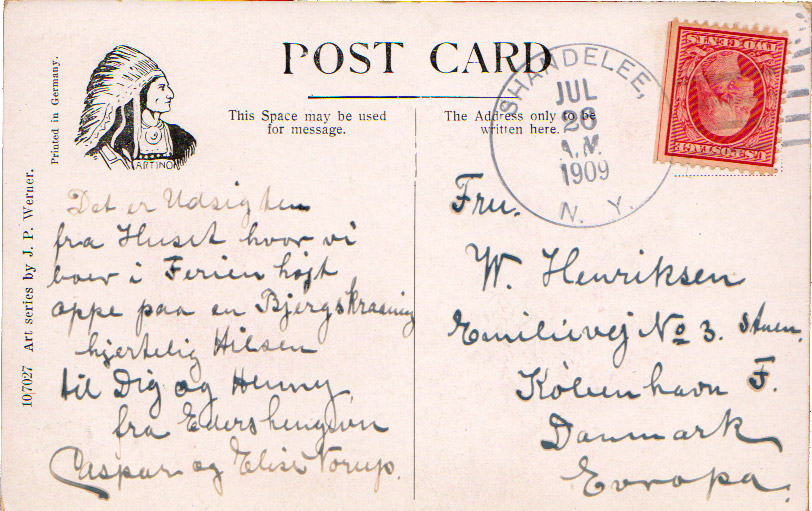 POST CARD
Printed in Germany.
ARTINO
10/7027 Art series by J. P. Werner.
This Space may be used
for message.
The Address only to be
written here.
SHANDELEE,
JUL
26
A.M.
1909
N. Y.
U.S. POSTAGE
TWO CENTS
Det er Udsigten
fra Huset hvor vi
boer i Ferien højt
oppe paa en Bjergskraaning
hjertelig Hilsen
til Dig og Henny
fra
Caspar og Elise Norup.
Fru.
W. Henriksen
Emilievej No 3. Stuen.
København F.
Danmark
Evropa.